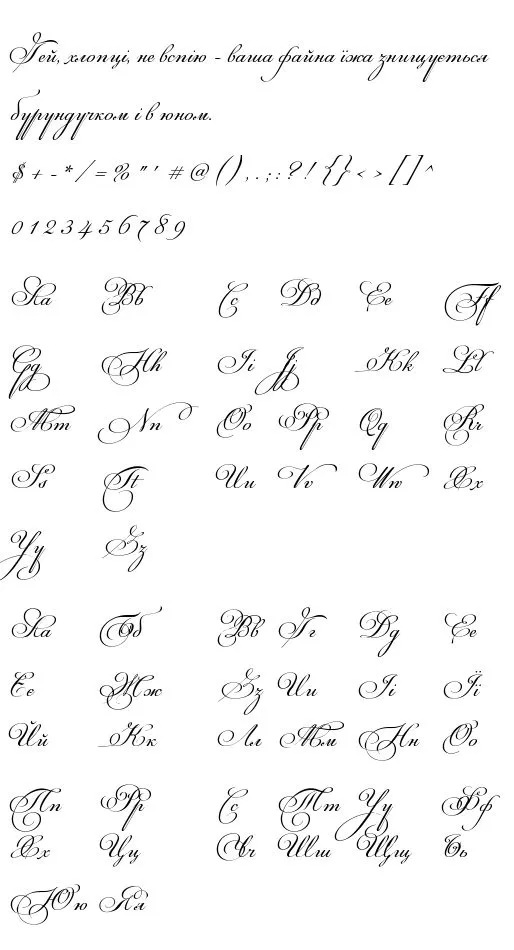 Гей, хлопці, не вспію - ваша файна їжа знищується
бурундучком і в юном.
$ + - * / = % " ' # @ ( ) , . ; : ? ! { } < > [ ] ^
0 1 2 3 4 5 6 7 8 9
Aa Bb Cc Dd Ee Ff
Gg Hh Ii Jj Kk Ll
Mm Nn Oo Pp Qq Rr
Ss Tt Uu Vv Ww Xx
Yy Zz
Аа Бб Вв Гг Дд Ее
Єє Жж Зз Ии Іі Її
Йй Кк Лл Мм Нн Оо
Пп Рр Сс Тт Уу Фф
Хх Цц Чч Шш Щщ Ьь
Юю Яя